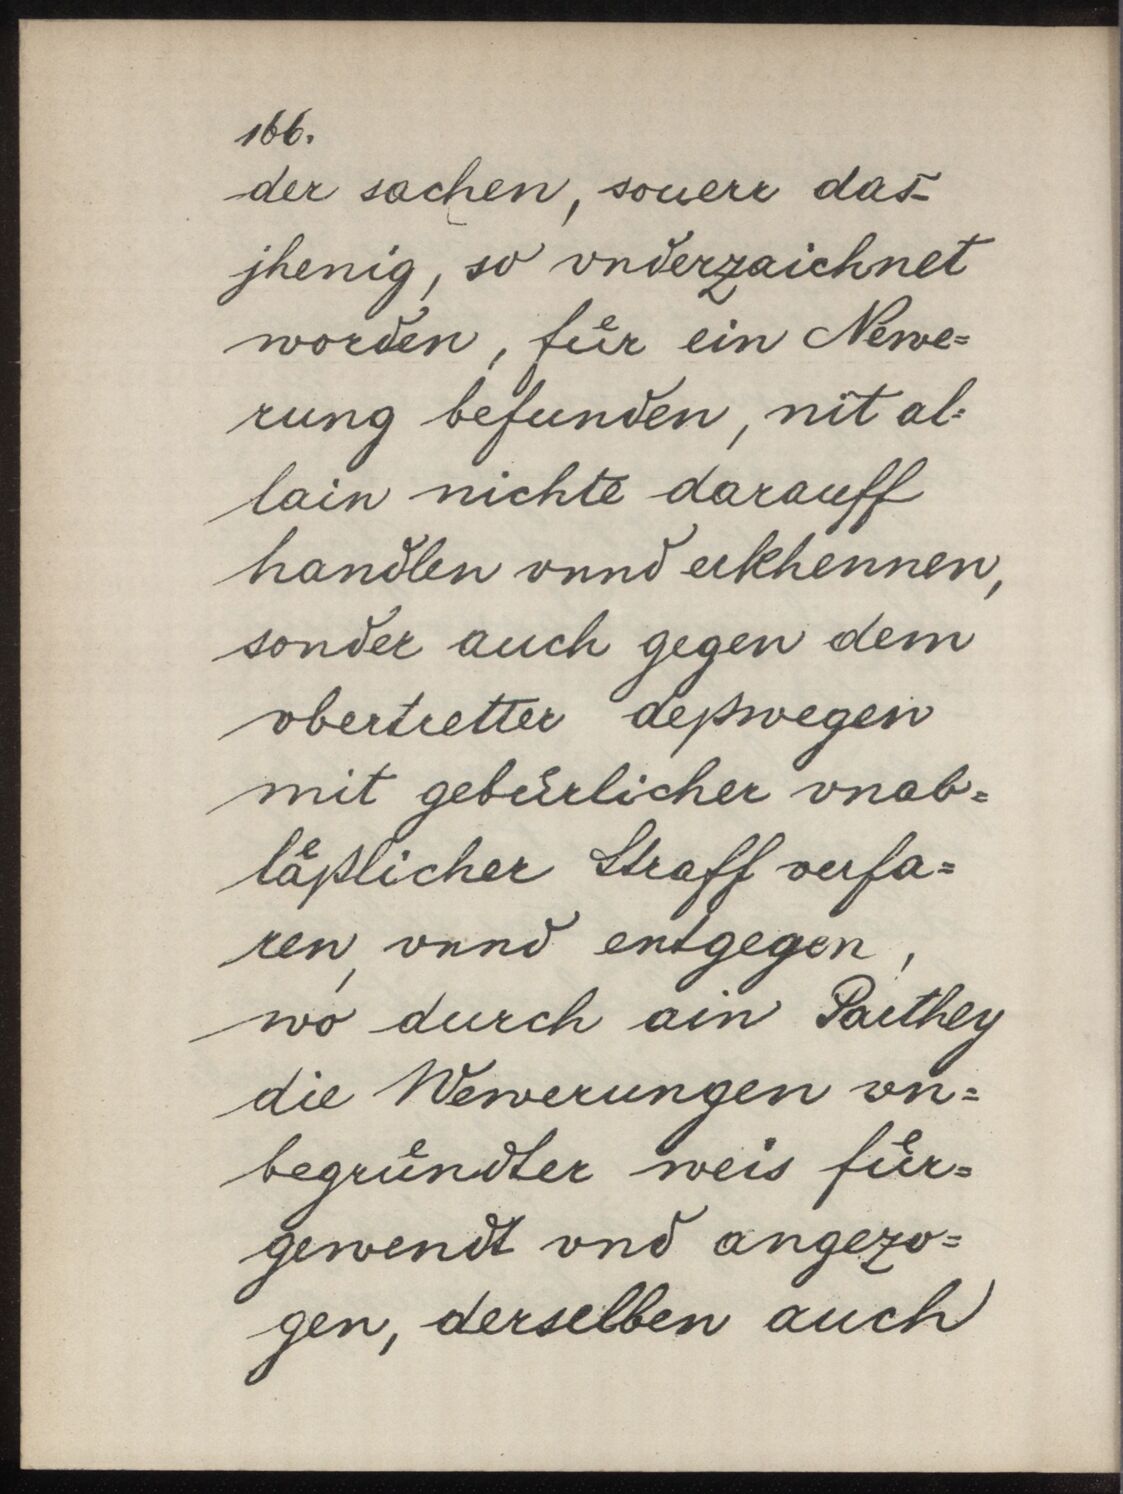 166.
der sachen, souerr das-
jhenig, so vnderzaichnet
worden, fuͤr ein Newe=
rung befunden, nit al=
lain nichte darauff
handlen vnnd erkhennen,
sonder auch gegen dem
vbertretter deßwegen
mit gebürlicher vnab=
laͤßlicher Straff verfa=
ren, vnnd entgegen,
wo durch ain Parthey
die Newerungen vn=
begruͤndter weis fuͤr=
gewendt vnd angezo=
gen, derselben auch